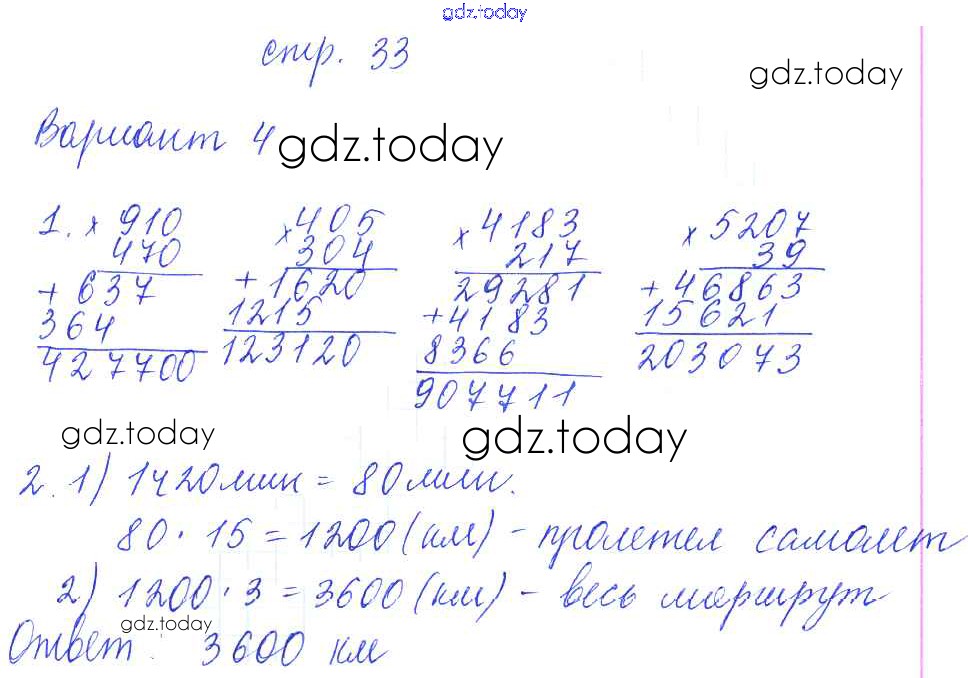 gdz.today
стр. 33
gdz.today
Вариант 4 gdz.today
1. × 910 × 405 × 4183 × 5207
470 304 217 39
+ 637 + 1620 29281 + 46863
364 1215 + 4183 15621
427700 123120 8366 203073
907711
gdz.today gdz.today
2. 1) 1ч20мин = 80мин.
80 · 15 = 1200 (км) - пролетел самолет
2) 1200 · 3 = 3600 (км) - весь маршрут
gdz.today
Ответ: 3600 км